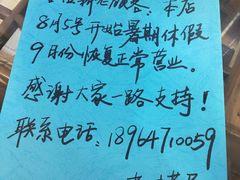 本店
8月5号开始暑期休假
9月份恢复正常营业.
感谢大家一路支持!
联系电话:18964710059